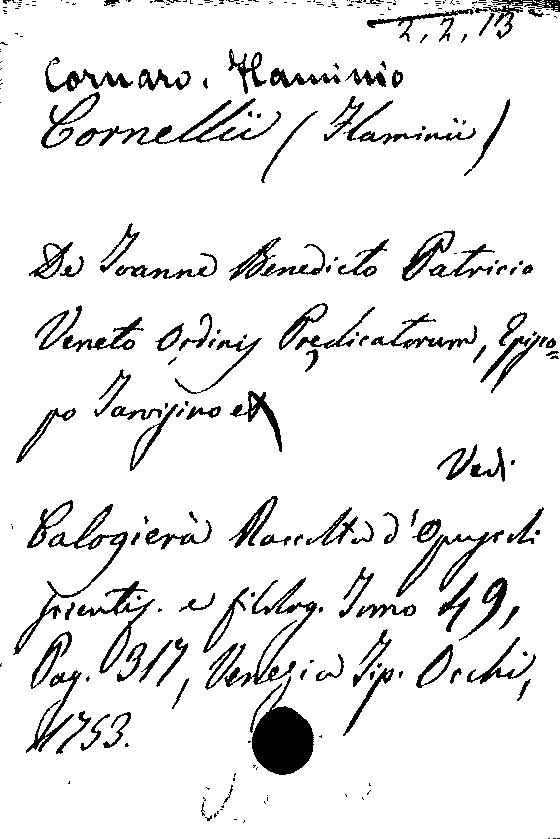 2.2.13
Cornaro. Flaminio
Cornelii (Flaminii)
De Ioanne Benedicto Patricio
Veneto Ordinis Prędicatorum, Episco=
po Tarvisino et
Vedi
Calogierà Raccolta d'Opuscoli
scientif. e filolog. Tomo 49,
Pag. 317, Venezia Tip. Occhi,
1753.